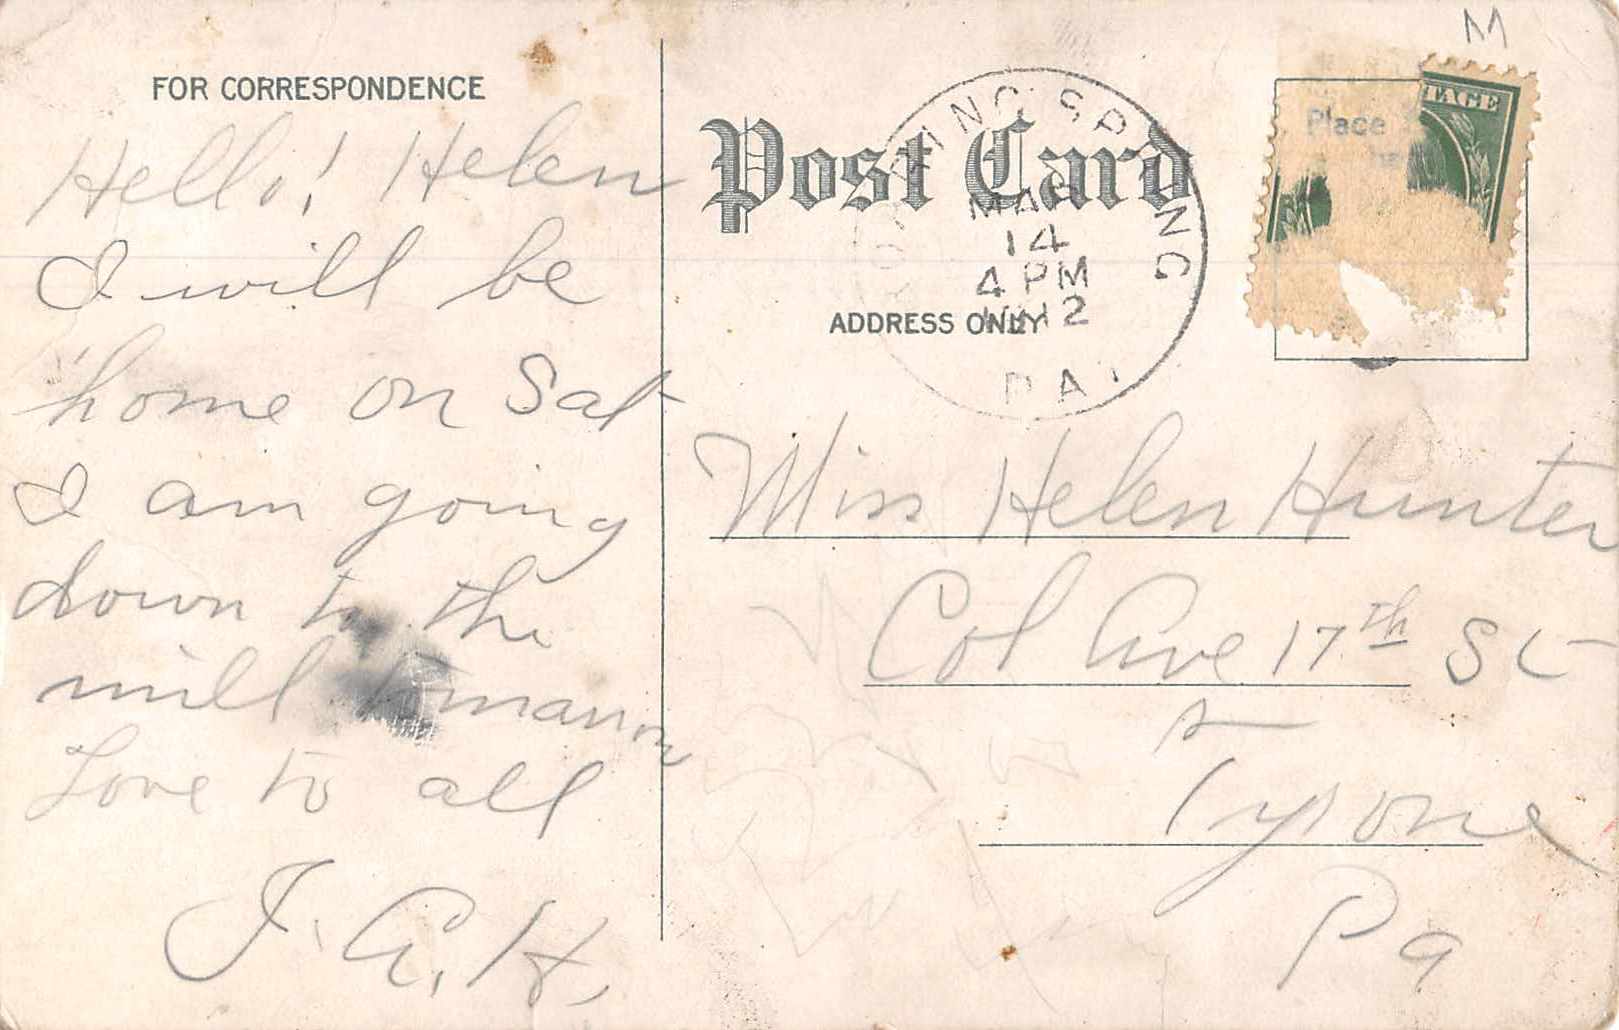 FOR CORRESPONDENCE
Hello! Helen
I will be
home on Sat
I am going
down to the
mill
Love to all
J. A. H.
Post Card
ROARING SPRING
MAR
14
4 PM
1912
PA.
ADDRESS ONLY
M
TAGE
Place
Miss Helen Hunter
Col Ave 17th St
Tyrone
Pa